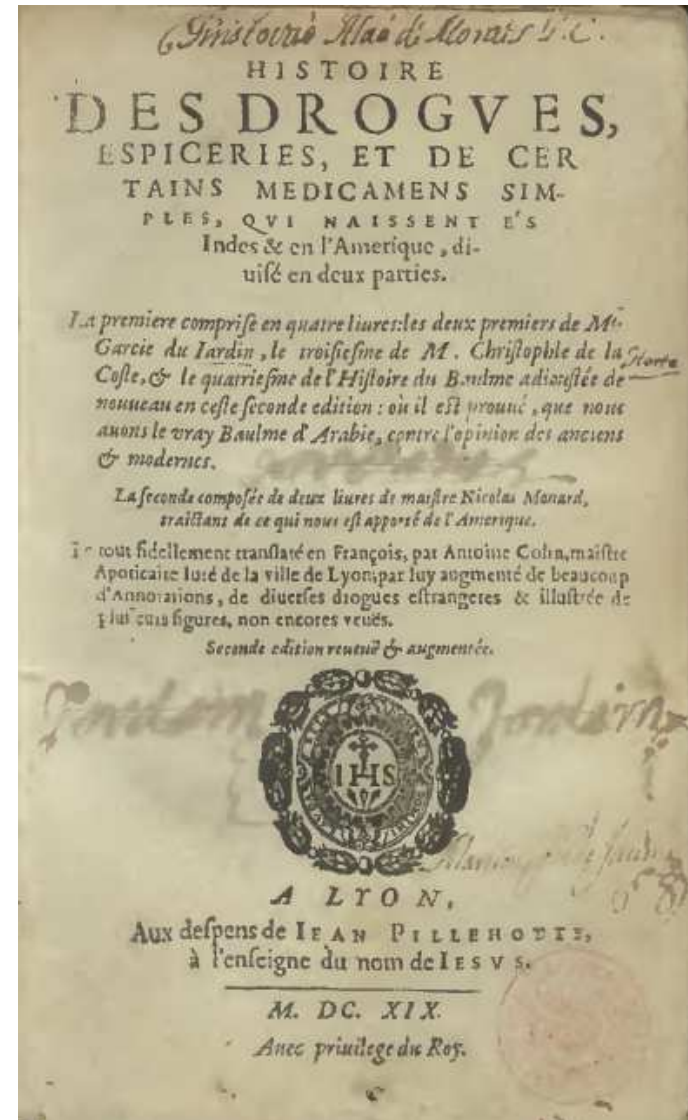 HISTOIRE
DES DROGVES,
ESPICERIES, ET DE CER
TAINS MEDICAMENS SIM-
PLES, QVI NAISSENT E'S
Indes & en l'Amerique, di-
uisé en deux parties.
La premiere comprise en quatre liures: les deux premiers de Mre.
Garcie du Iardin, le troisiesme de M. Christophle de la
Horta
Coste, & le quatriesme de l'Histoire du Baulme adioustée de
nouueau en ceste seconde edition: où il est prouué, que nous
auons le vray Baulme d'Arabie, contre l'opinion des anciens
& modernes.
La seconde composée de deux liures de maistre Nicolas Monard,
traictant de ce qui nous est apporté de l'Amerique.
Le tout fidellement translaté en François, par Antoine Colin, maistre
Apoticaire Iuré de la ville de Lyon; par luy augmenté de beaucoup
d'Annotations, de diuerses drogues estrangeres & illustrée de
plusieurs figures, non encores veuës.
Seconde edition reueuë & augmentée.
IHS
A LYON,
Aux despens de IEAN PILLEHOTTE,
à l'enseigne du nom de IESVS.
M. DC. XIX.
Auec priuilege du Roy.